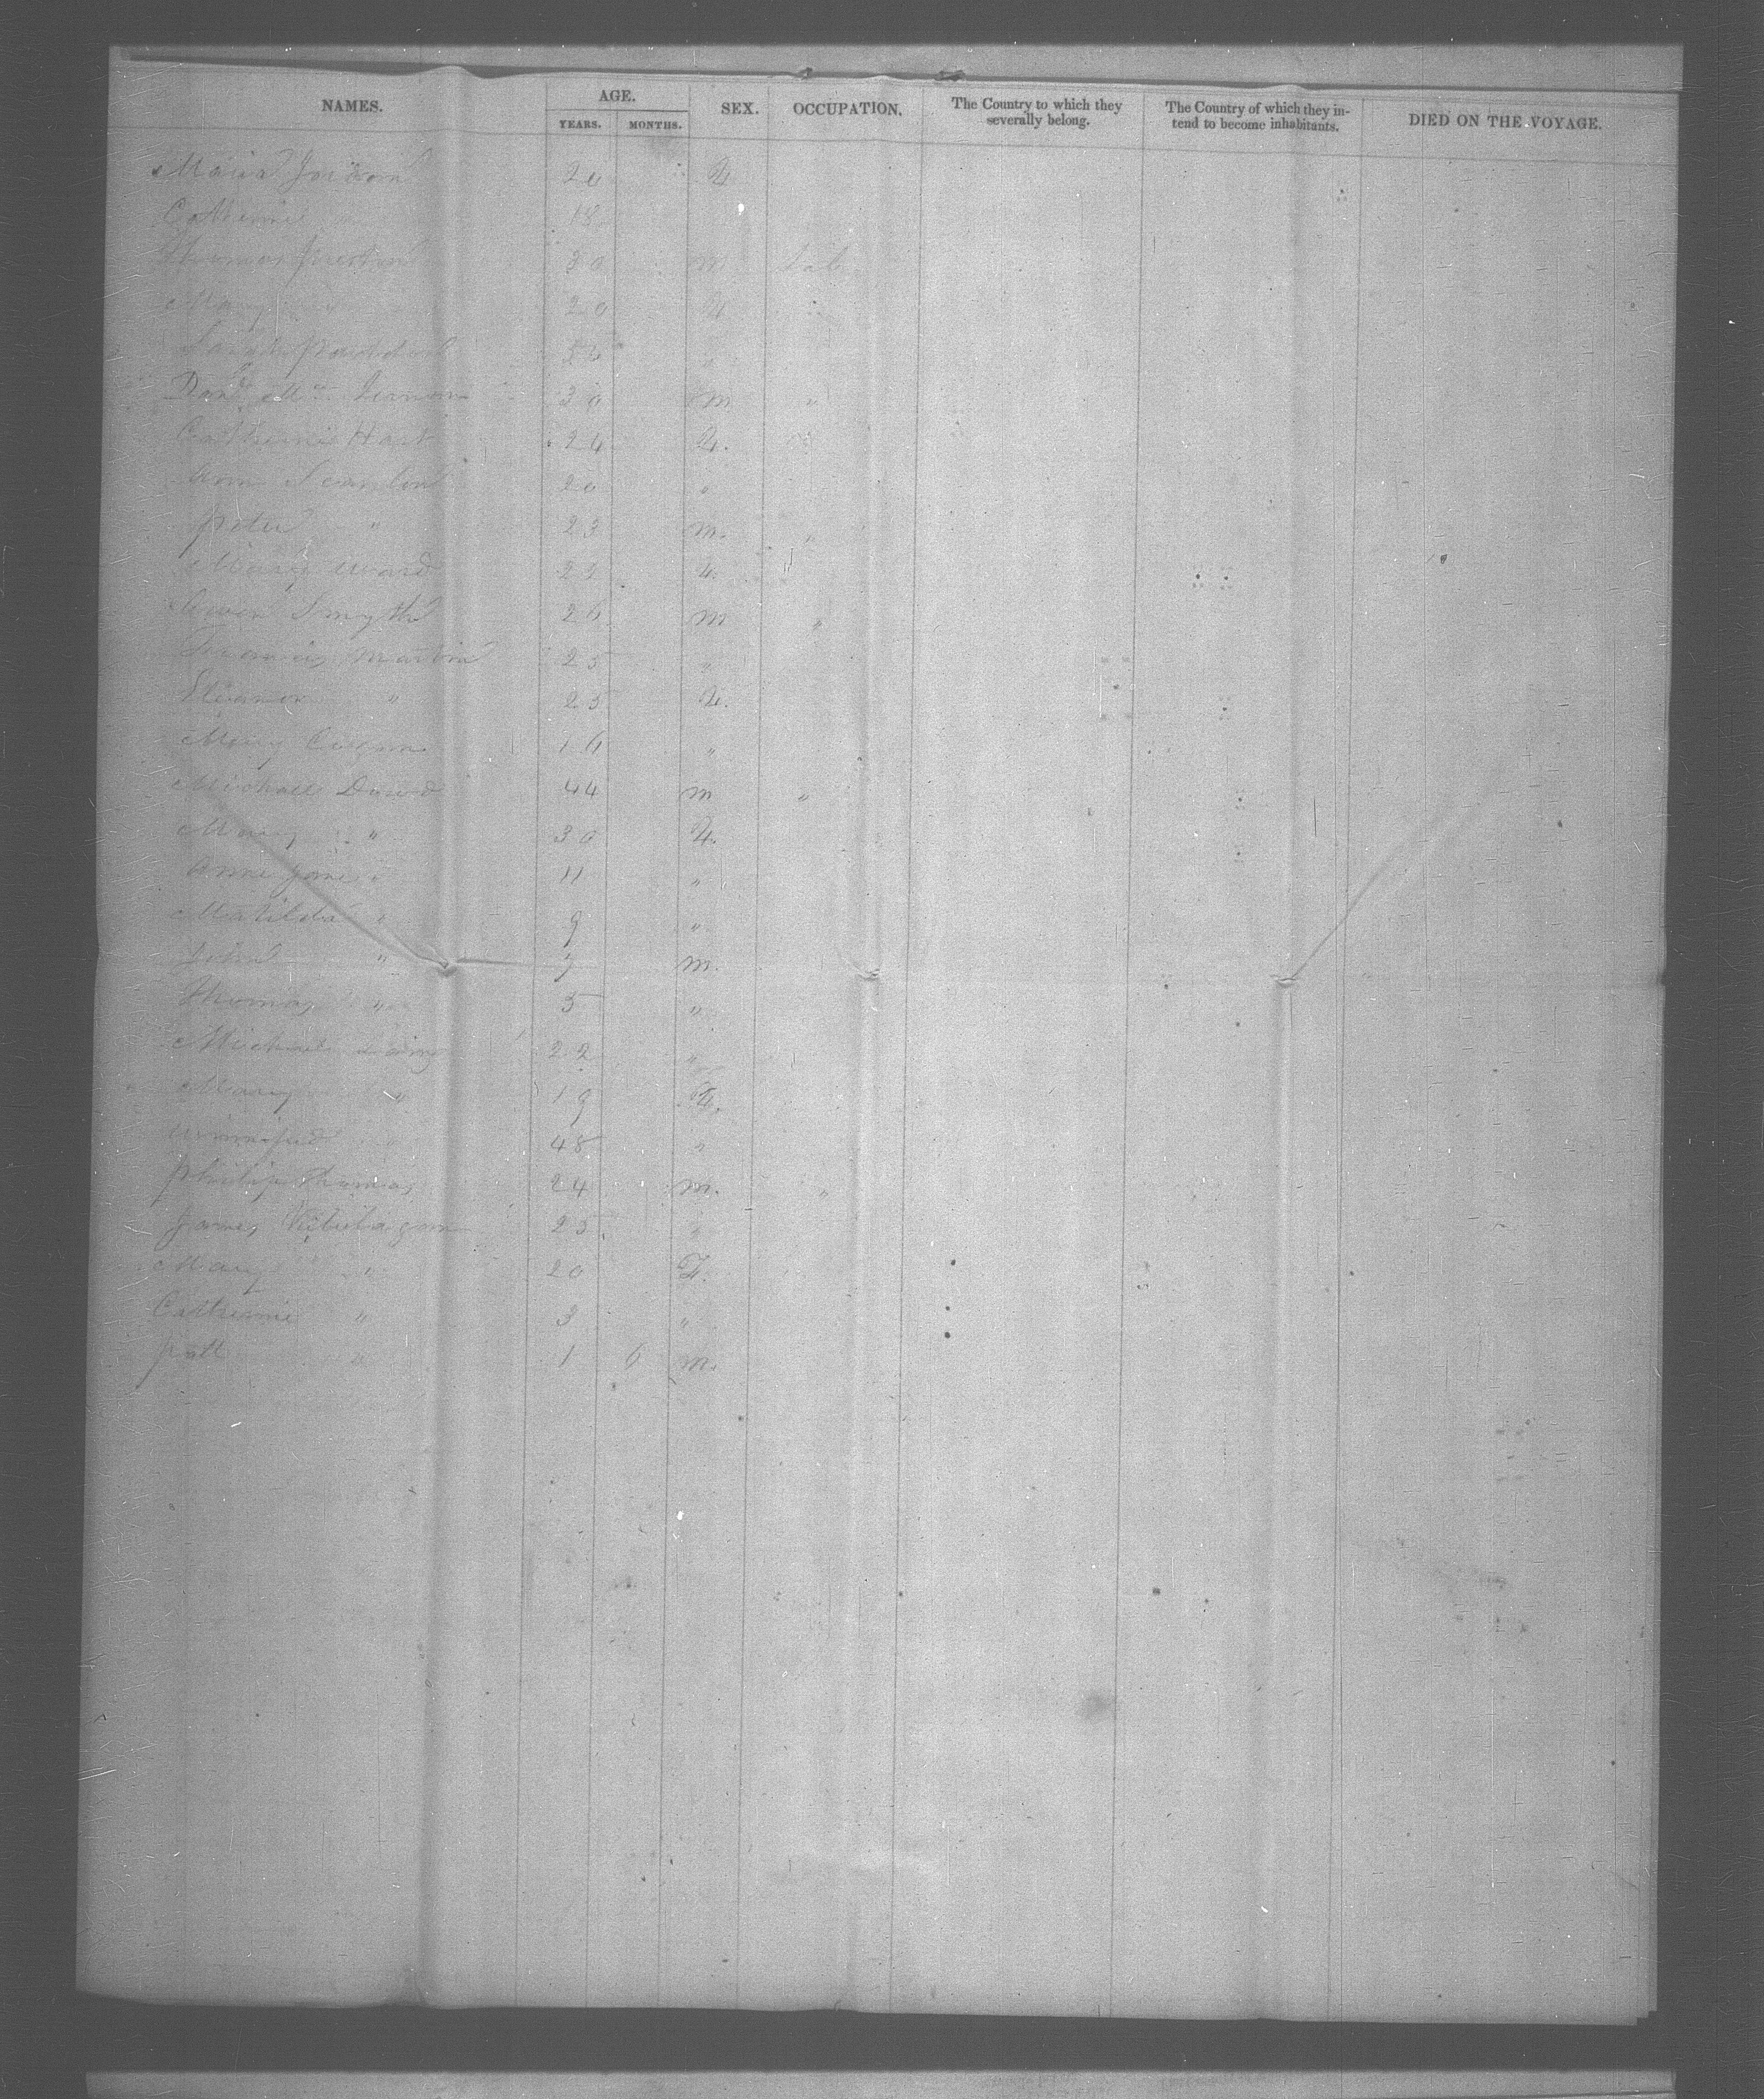 NAMES. AGE. SEX. OCCUPATION. The Country to which they severally belong. The Country of which they in-tend to become inhabitants. DIED ON THE VOYAGE.
YEARS. MONTHS.
Maria 20 F
Catherine 18
Thomas 30 m Lab
Mary 20 F
Sarah "
Danl Mc 30 m "
Catherine Hart 24 F.
Ann Scanlon 20 "
Peter " 23 m. "
Mary Ward 22 F.
Owen Smyth 26 m "
Francis Martin 25 "
Eleanor " 25 F.
Mary 16 "
Michael David 44 m "
Mary " 30 F.
Anne Jane " 11 "
Matilda " 9 "
John " 7 m.
Thomas " 5 "
Michael 22 "
Mary " 19 F.
Winnifred " 48 "
Philip Thomas 24 m. "
James 25 "
Mary " 20 F.
Catherine " 3 "
Patt " 1 6 m.